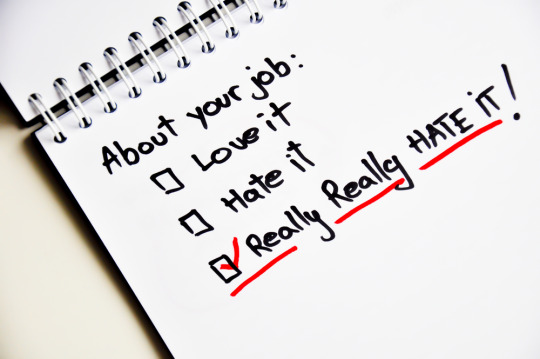 About your job:
Love it
Hate it
Really Really HATE iT!